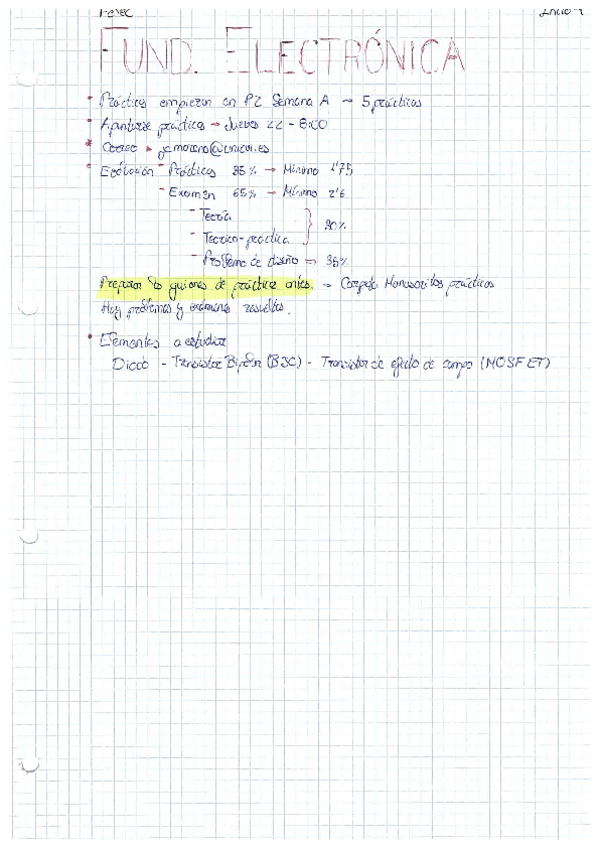 FUND. ELECTRÓNICA
• Prácticas empiezan en P2 Semana A → 5 prácticas
• Apuntarse prácticas → Jueves 22 - 8:00
• Correo → jcmoreno@unizar.es
• Evaluación - Prácticas 35% → Mínimo 1'75
- Examen 65% → Mínimo 2'6
- Teoría
- Teórico-práctica } 30%
- Problema de diseño → 35%
Preparar los guiones de prácticas antes. → Carpeta Manuscritos prácticas
Hay problemas y exámenes resueltos.
• Elementos a estudiar
Diodo - Transistor Bipolar (BJC) - Transistor de efecto de campo (MOSFET)